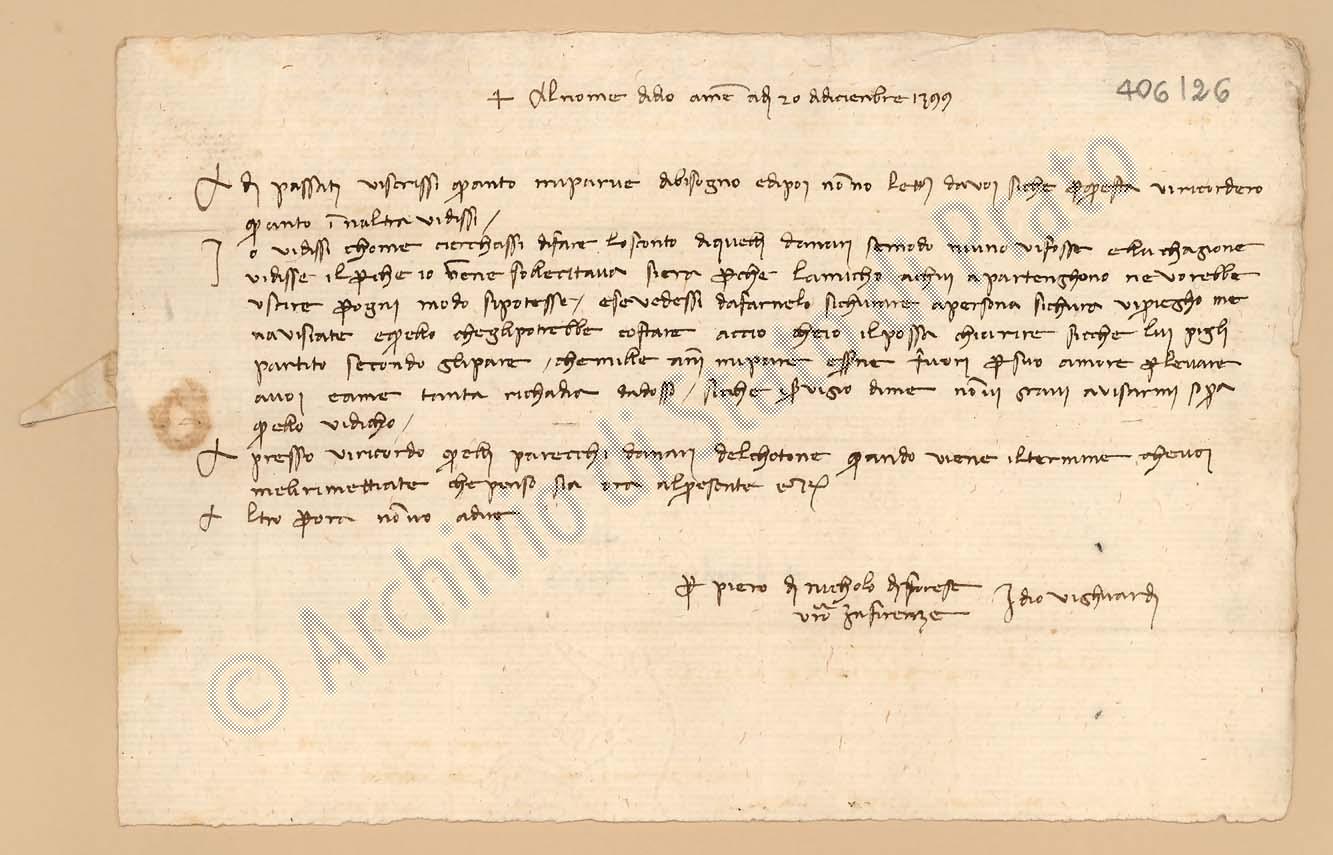 + Al nome didio ame adi 20 didicienbre 1399
406/26
A di passati viscrissi quanto miparve dibisogno edipoi nonno lett davoi sicche p questa viricordero
quanto i nnaltra vidissi /
Io vidissi chome cierchassi difare losconto diquelli danari semodo niuno vifosse ella chagione
vidisse il pche io vene sollecitava siera pche lamicho achui apartenghono nevorebbe
uscire p ogni modo sipotesse / esevedessi dafarnelo sichurare apersona sichura vipriegho me
navisiate equello cheglipotrebbe costare accio cheio ilpossa chiarire sicche lui pigli
partito secondo glipare / chemille anni mipare essrne fuori p suo amore p levare
avoi eame tanta richadia dadosso / sicche p vigio dime nonvi gravi avisarmi sopra
quello vidicho /
Apresso viricordo quelli parecchi danari delchotone quando viene iltermine chevoi
melirimettiate chepenso sia ora alpresente
Altro p ora nonno adire
p piero di nicholo difirenze
vro Infirenze
Idio vighuardi
© Archivio di Stato di Prato